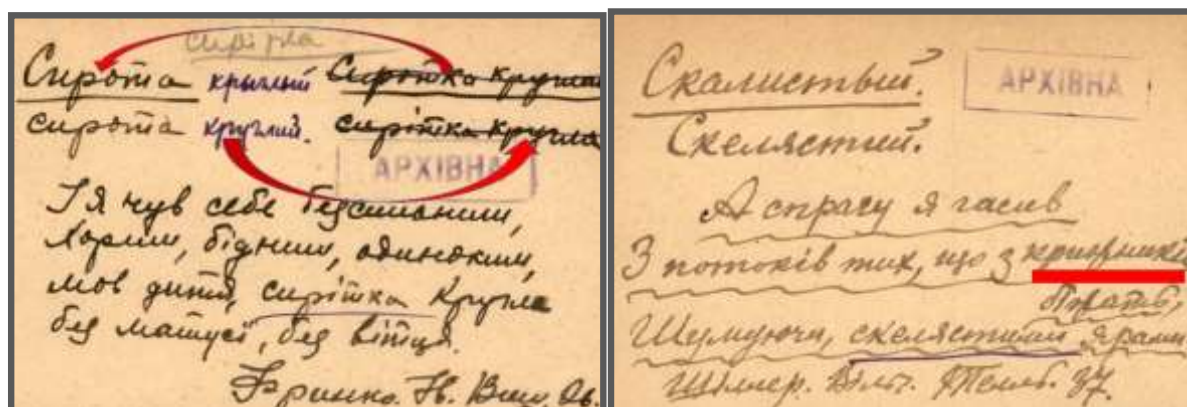 сирітка
Сирота круглый Сиротка круглая
сирота круглий. сирітка кругла
АРХІВНА
І я чув себе безсильним,
Хорим, бідним, одиноким,
мов дитя, сирітка кругла
без матусі, без вітця.
Франко. Ів. Виш. 26.
Скалистый.
АРХІВНА
Скелястий.
А спрагу я гасив
З потоків тих, що з
Шумуючи, скелястими ярами
Шіллер. Вільг. Телль. 37.